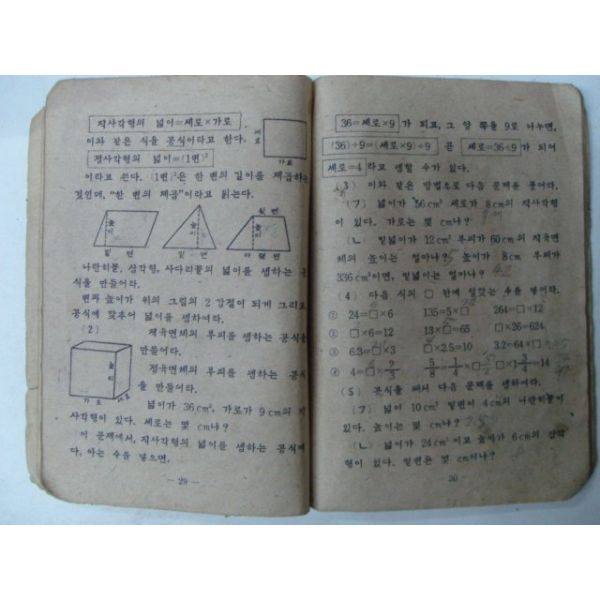 직사각형의 넓이=세로×가로
이와 같은 식을 공식이라고 한다.
세로
가로
정사각형의 넓이=(1변)²
이라고 쓴다. (1변)²은 한 변의 길이를 제곱하는
것인데, "한 변의 제곱"이라고 읽는다.
높이
밑 변
높이
밑 변
윗 변
높이
아랫 변
나란히꼴, 삼각형, 사다리꼴의 넓이를 셈하는 공
식을 만들어라.
변과 높이가 위의 그림의 2 갑절이 되게 그리고
공식에 맞추어 넓이를 셈하여라.
(2) 직육면체의 부피를 셈하는 공식을
만들어라.
정육면체의 부피를 셈하는 공식
을 만들어라.
높이
가로
세로
넓이가 36cm², 가로가 9cm의 직
사각형이 있다. 세로는 몇 cm냐?
이 문제에서, 직사각형의 넓이를 셈하는 공식에
다, 아는 수를 넣으면,
— 29 —
36=세로×9 가 되고, 그 양 쪽을 9로 나누면,
(36)÷9=(세로×9)÷9 곧 세로=36÷9 가 되어
세로=4 라고 셈할 수가 있다.
(3) 이와 같은 방법으로 다음 문제를 풀어라.
(ㄱ) 넓이가 56cm² 세로가 8cm의 직사각형
이 있다. 가로는 몇 cm냐?
(ㄴ) 밑넓이가 12cm² 부피가 60cm의 직육면
체의 높이는 얼마냐? 5 높이가 8cm 부피가
336cm³이면, 밑넓이는 얼마냐? 42
(4) 다음 식의 □ 안에 알맞는 수를 넣어라.
① 24=□×6 135=5×□ 264=□×12
② □×6=12 13×□=65 □×26=624
③ 6.3=□×3 □×2.5=10 3.2=64×□
④ 4=□×2/3 5/8=1/4×□ □×1 3/4=14
(5) 공식을 써서 다음 문제를 셈하여라.
(ㄱ) 넓이 10cm² 밑변이 4cm의 나란히꼴이
있다. 높이는 몇 cm냐? 2.5
(ㄴ) 넓이가 24cm²이고 높이가 6cm의 삼각
형이 있다. 밑변은 몇 cm이냐?
30